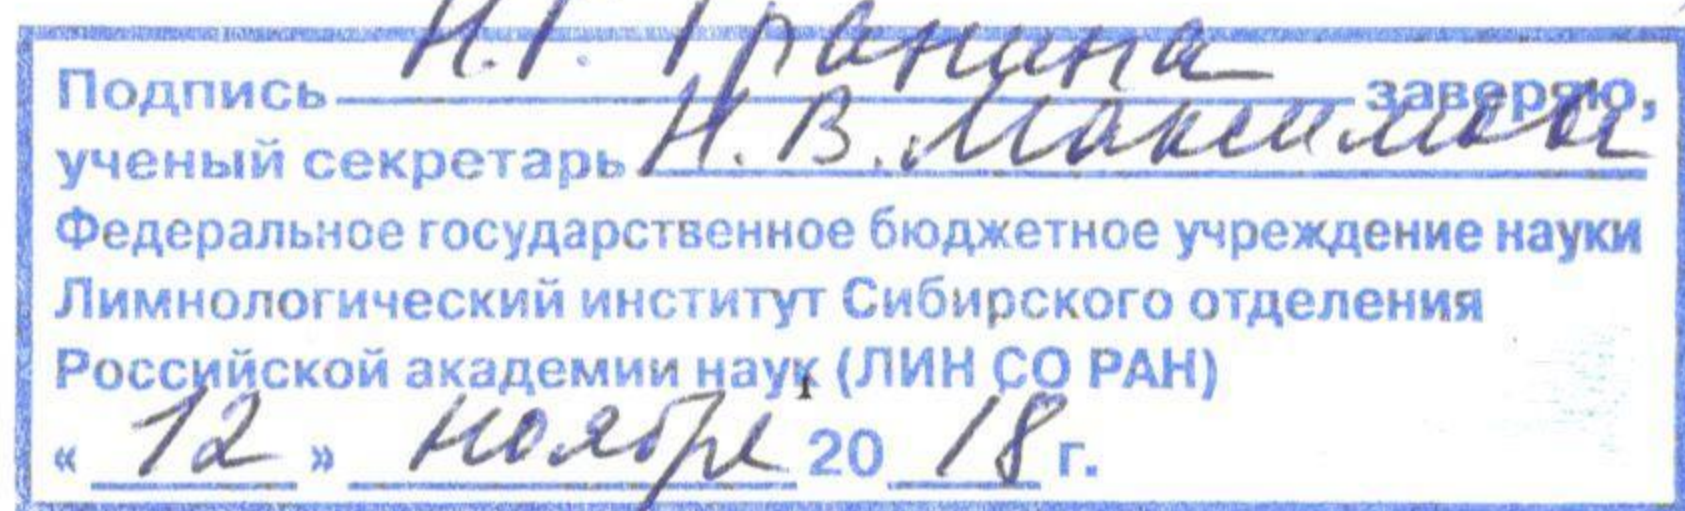 Подпись Н.Г. Гранина заверяю,
ученый секретарь Н.В. Максимова
Федеральное государственное бюджетное учреждение науки
Лимнологический институт Сибирского отделения
Российской академии наук (ЛИН СО РАН)
« 12 » ноября 2018 г.